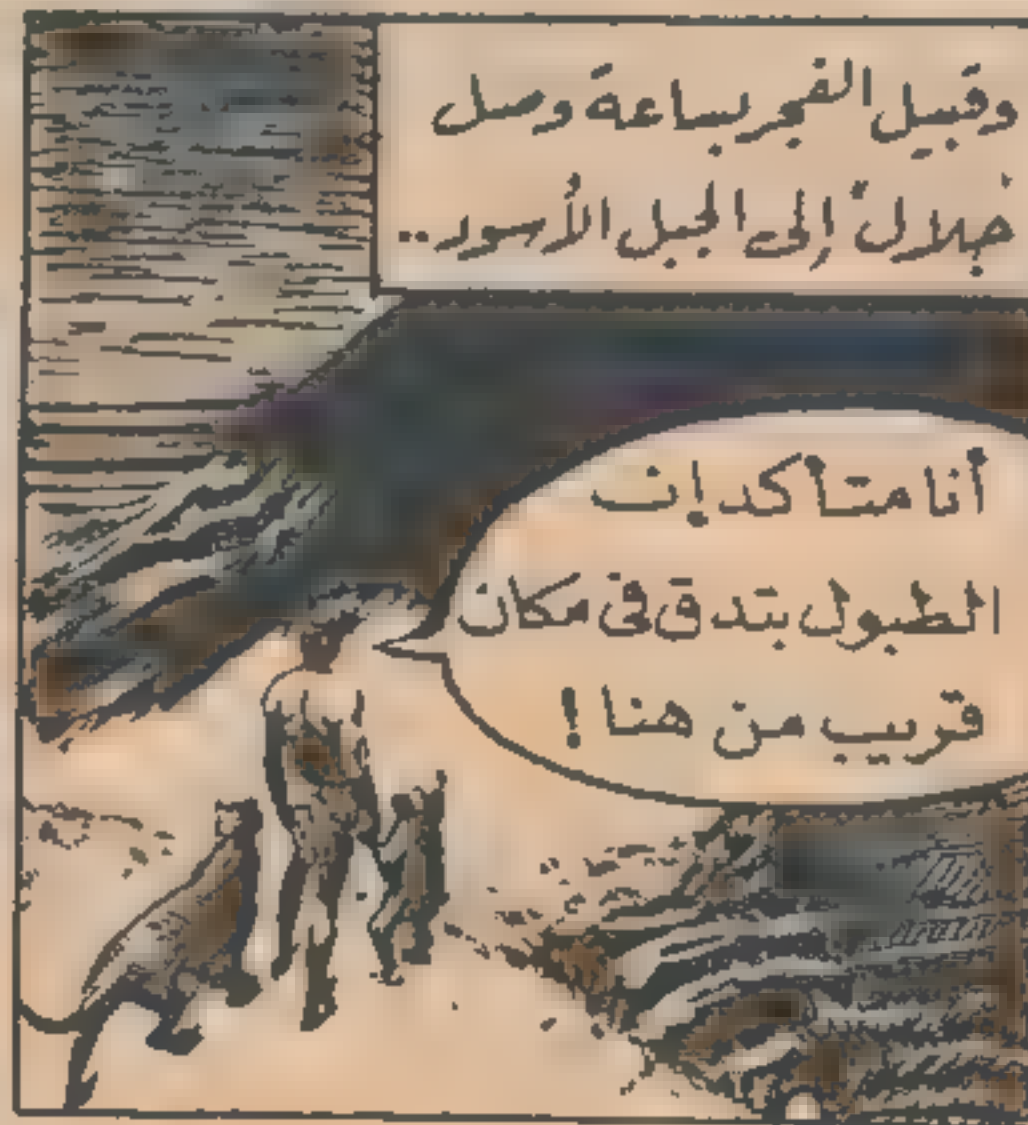 وقبيل الفجر بساعة وصل
خلال إلى الجبل الأسود..
أنا متأكد إن
الطبول بتدق في مكان
قريب من هنا!